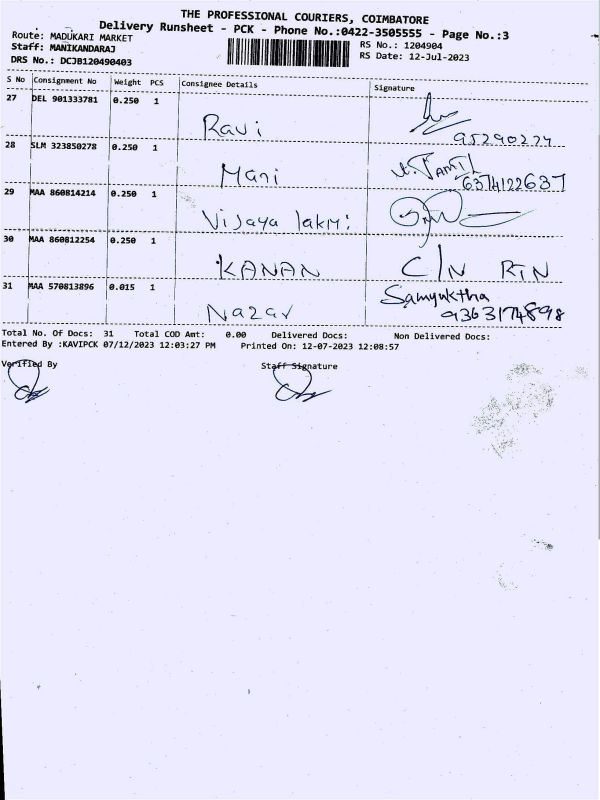 THE PROFESSIONAL COURIERS, COIMBATORE
Delivery Runsheet - PCK - Phone No.:0422-3505555 - Page No.:3
Route: MADUKARI MARKET
RS No.: 1204904
Staff: MANIKANDARAJ
RS Date: 12-Jul-2023
DRS No.: DCJB120490403
S No Consignment No Weight PCS Consignee Details Signature
27 DEL 901333781 0.250 1
Ravi 95290274
28 SLM 323850278 0.250 1
Mani TAMIL
6374122637
29 MAA 860814214 0.250 1
Vijaya lakmi
30 MAA 860812254 0.250 1
KANAN C/N RTN
31 MAA 570813896 0.015 1 Samyuktha
Nazar 9363174898
Total No. Of Docs: 31 Total COD Amt: 0.00 Delivered Docs: Non Delivered Docs:
Entered By :KAVIPCK 07/12/2023 12:03:27 PM Printed On: 12-07-2023 12:08:57
Verified By Staff Signature